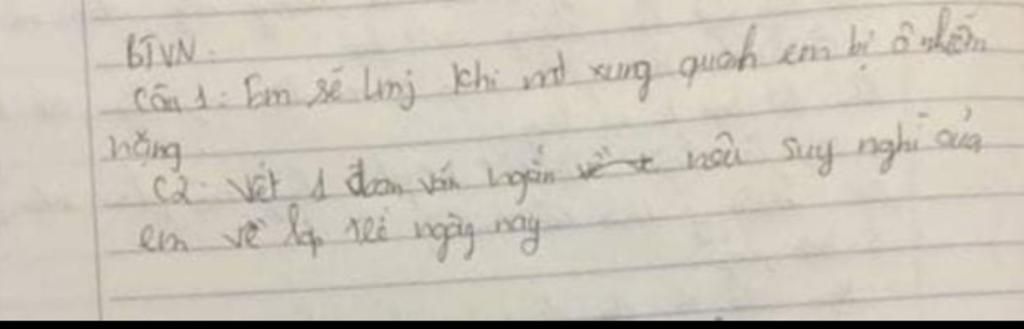 BTVN:
Câu 1: Em sẽ lmj khi mt xung quanh em bị ô nhiễm
nặng
C2: Viết 1 đoạn văn ngắn nêu suy nghĩ của
em về lớp trẻ ngày nay